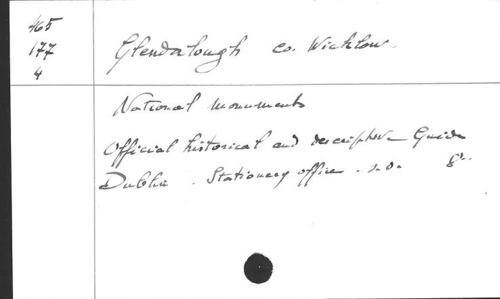 465
177
4
Glendalough co. Wicklow.
National monuments
Official historical and descriptive Guide
Dublin. Stationery office. s.d. 8º.